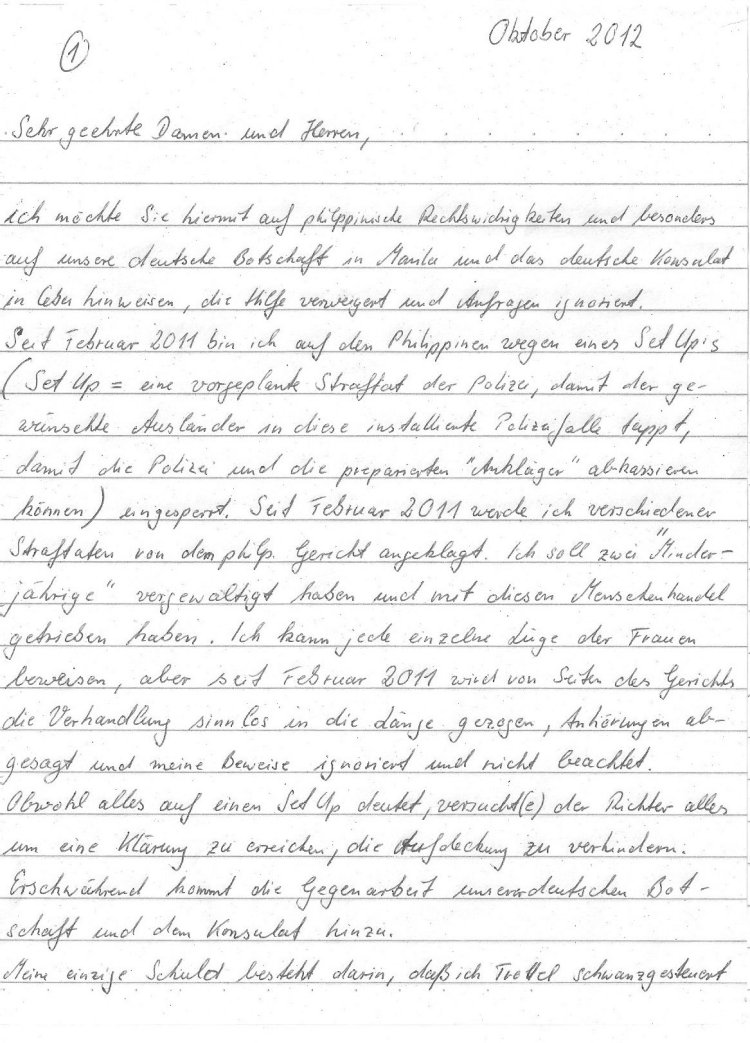 Oktober 2012
1
Sehr geehrte Damen und Herren,
ich möchte Sie hiermit auf philppinische Rechtswidrigkeiten und besonders
auf unsere deutsche Botschaft in Manila und das deutsche Konsulat
in Cebu hinweisen, die Hilfe verweigert und Anfragen ignoriert.
Seit Februar 2011 bin ich auf den Philippinen wegen eines Set Up's
(Set Up = eine vorgeplante Straftat der Polizei, damit der ge-
wünschte Ausländer in diese installierte Polizeifalle tappt,
damit die Polizei und die preparierten "Ankläger" abkassieren
können) eingesperrt. Seit Februar 2011 werde ich verschiedener
Straftaten von dem philp. Gericht angeklagt. Ich soll zwei "Minder-
jährige" vergewaltigt haben und mit diesen Menschenhandel
getrieben haben. Ich kann jede einzelne Lüge der Frauen
beweisen, aber seit Februar 2011 wird von Seiten des Gerichts
die Verhandlung sinnlos in die Länge gezogen, Anhörungen ab-
gesagt und meine Beweise ignoriert und nicht beachtet.
Obwohl alles auf einen Set Up deutet, versucht(e) der Richter alles
um eine Klärung zu erreichen, die Aufdeckung zu verhindern.
Erschwährend kommt die Gegenarbeit unserer deutschen Bot-
schaft und dem Konsulat hinzu.
Meine einzige Schuld besteht darin, daß ich Trottel schwanzgesteuert